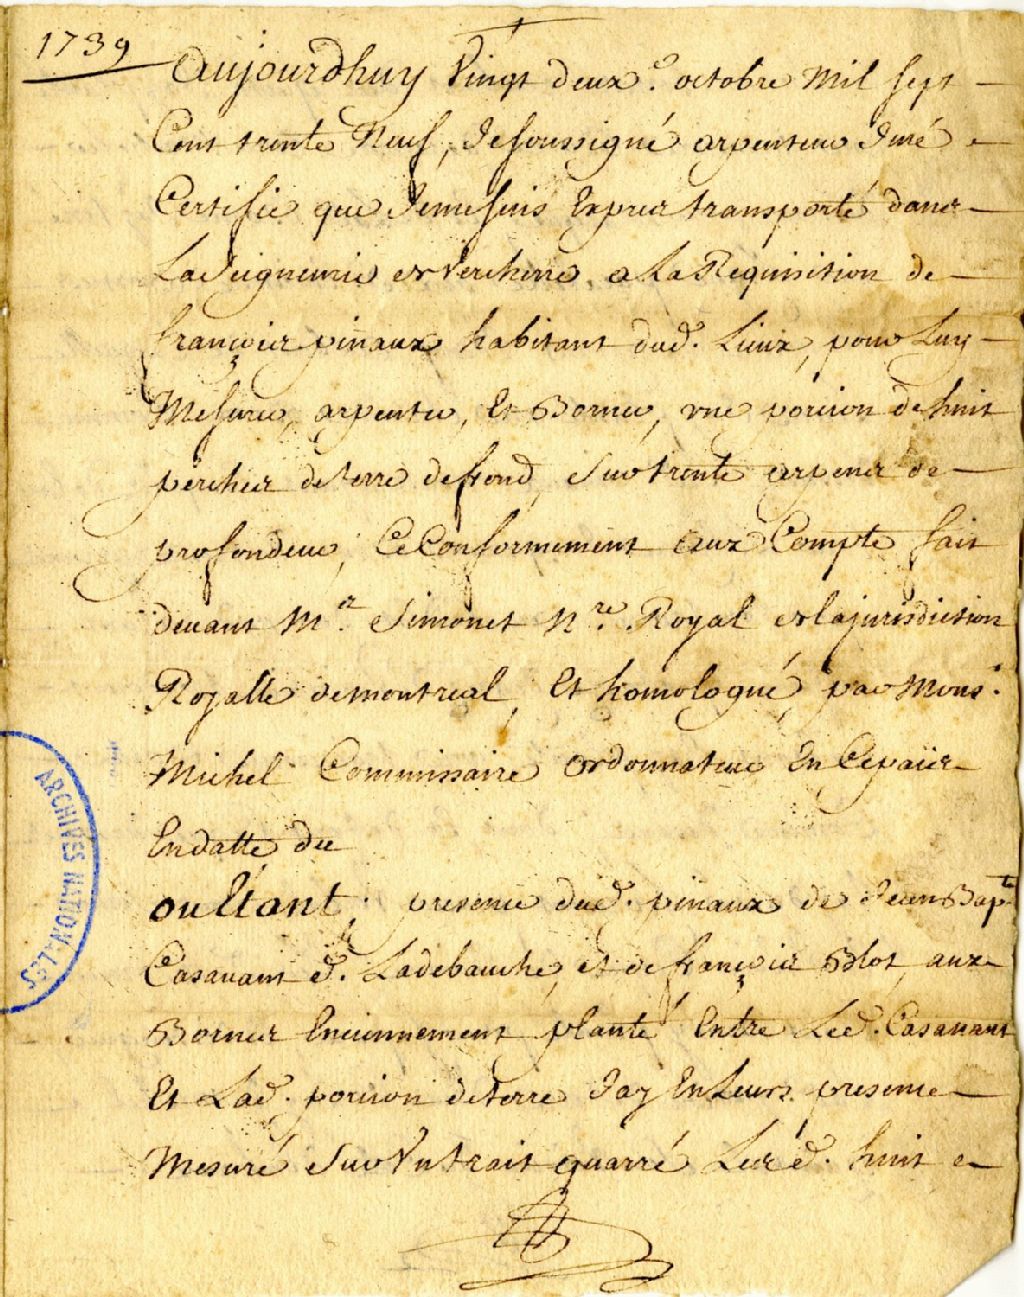 1739
Aujourdhuy Vingt deux.e octobre Mil sept
Cent trente Neuf, Je soussigné arpenteur Juré
Certifie que Je me suis Expres transporté dans
La Seigneurie de Verchere a La Requisition de
françois pinaux habitant dud. Lieux, pour Luy
Mesurer, arpenter, Et Borner, vne porcion de huit
perches de terre de frond, Sur trente arpens de
profondeur, Ce Conformement aux Compte fait
deuant Mr. Simonet Nre. Royal de la jurisdiction
Royalle de montreal, Et homologué, par Mons.
Michel Commissaire ordonnateur En Ce païs
En datte du
ou Etant, presence dud. pinaux de Jean Bapte
Casauant d. Ladebauche, et de françois Blot, aux
Bornes Enciennement planté Entre Led. Casauant
Et Lad. porcion de terre Jay En Leurs presence
Mesuré Sur Vn trait quarré Lesd. huit
ARCHIVES NATION-LES